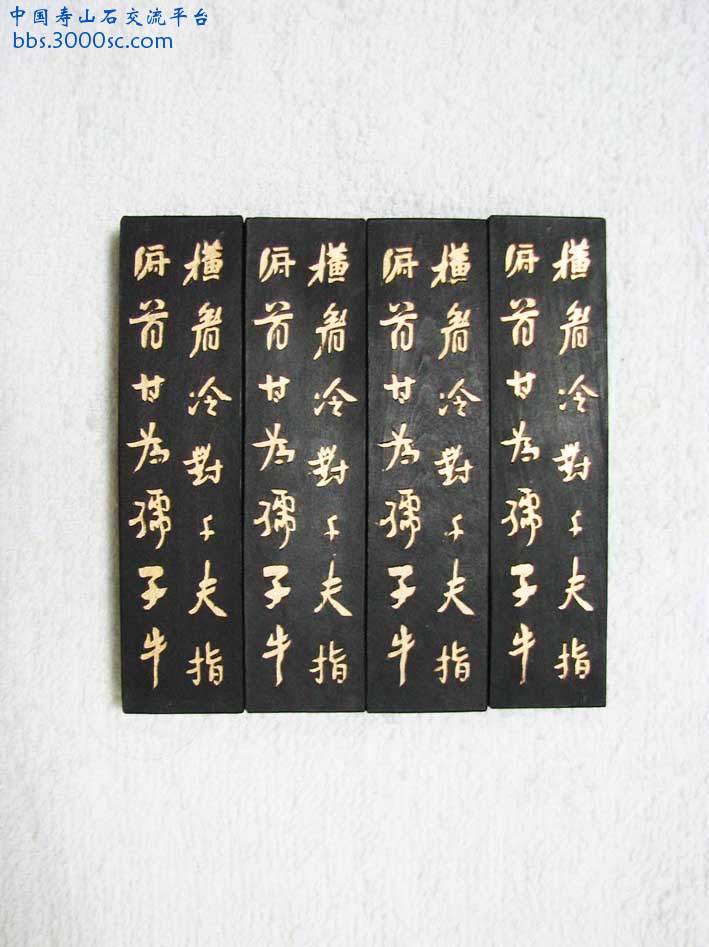 中国寿山石交流平台
bbs.3000sc.com
橫眉冷對千夫指
俯首甘為孺子牛
橫眉冷對千夫指
俯首甘為孺子牛
橫眉冷對千夫指
俯首甘為孺子牛
橫眉冷對千夫指
俯首甘為孺子牛